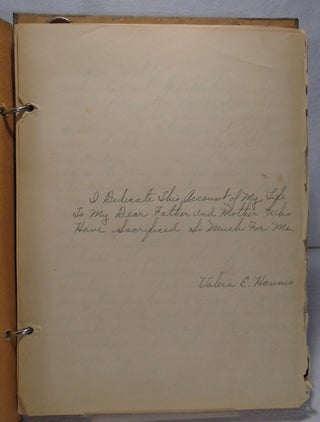 I Dedicate This Account of My Life
To My Dear Father And Mother Who
Have Sacrificed So Much For Me.
Valera E.